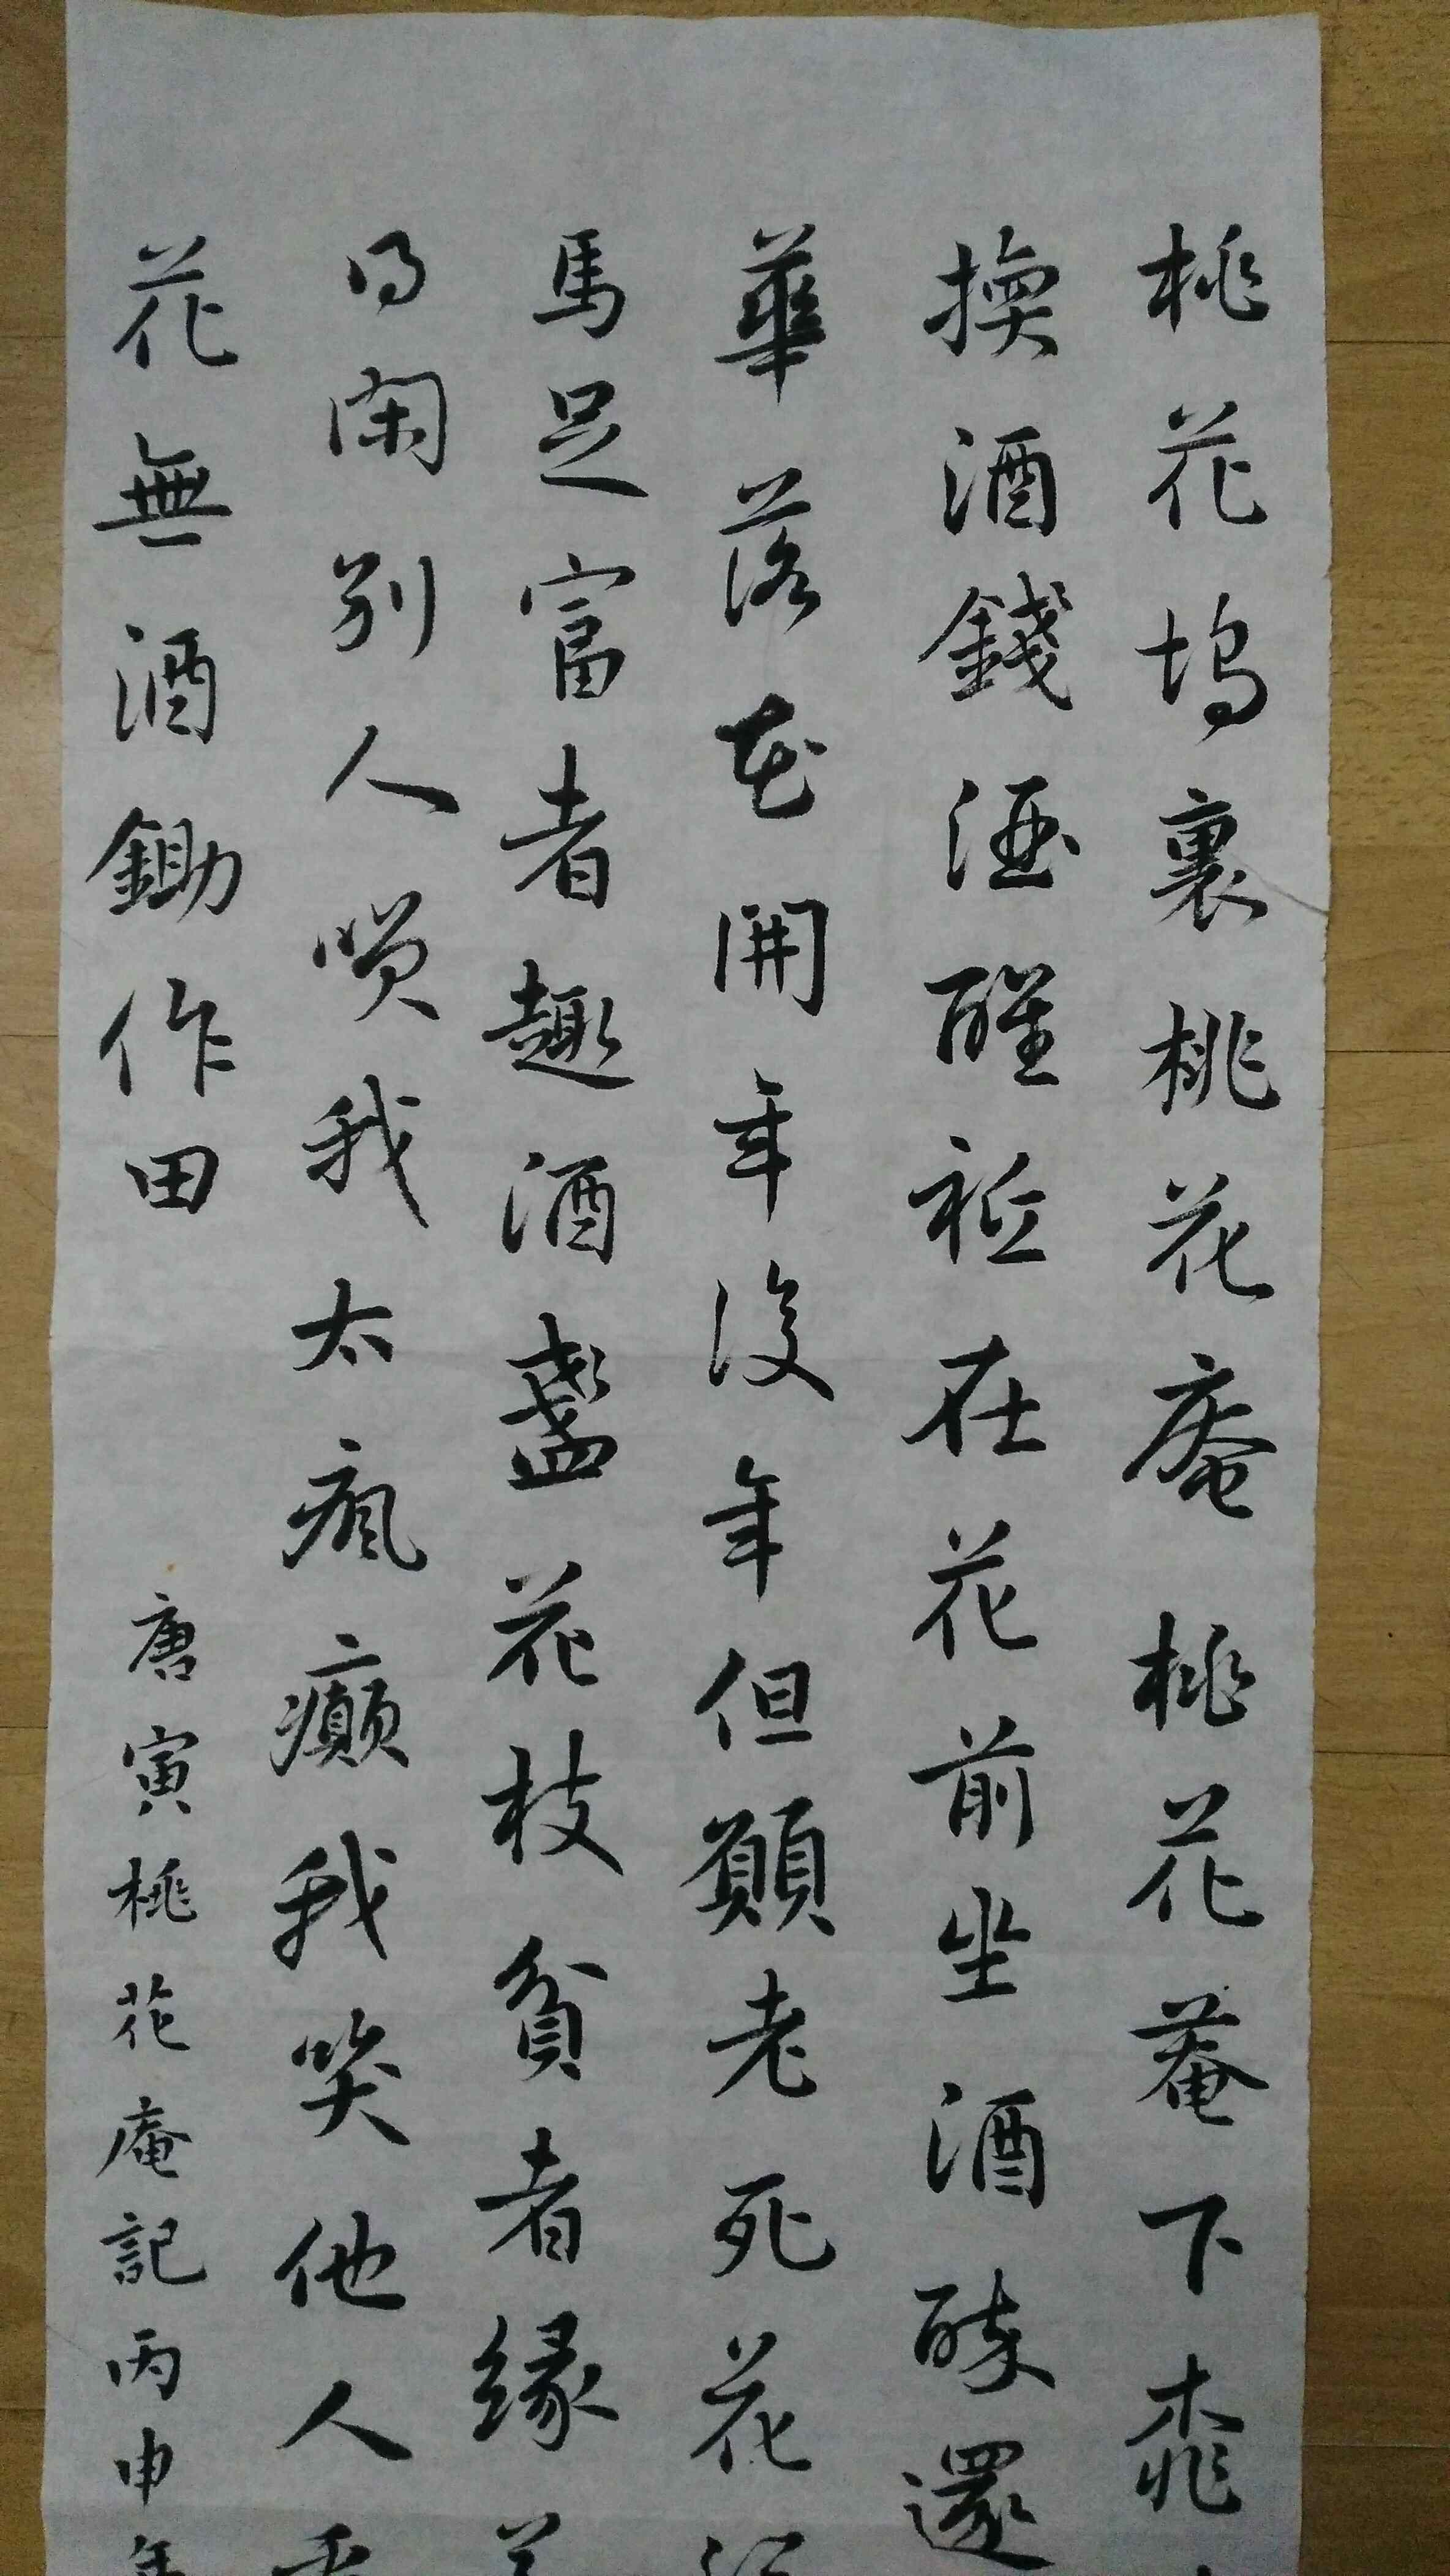 桃花塢裏桃花庵桃花菴下桃
換酒錢酒醒衹在花前坐酒醉還
華落花開年後年但願老死花
馬足富者趣酒盞花枝貧者緣
得閑別人笑我太瘋癲我笑他人
花無酒鋤作田
唐寅桃花庵記丙申年